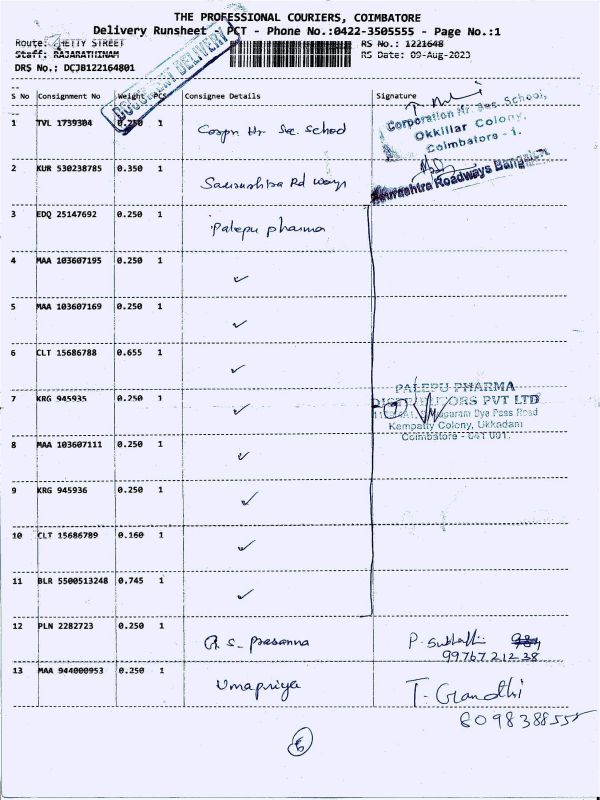 THE PROFESSIONAL COURIERS, COIMBATORE
Delivery Runsheet - PCT - Phone No.:0422-3505555 - Page No.:1
Route: CHETTY STREET
RS No.: 1221648
Staff: RAJARATHINAM
RS Date: 09-Aug-2023
DRS No.: DCJB122164801
DOCUMENT DELIVERY
S No Consignment No Weight PCS Consignee Details Signature
1 TVL 1739304 0.250 1 Corpn Hr Sec. School
Corporation Hr. Sec. School,
Okkiliar Colony,
Coimbatore - 1.
2 KUR 530238785 0.350 1 Saurashtra Rd ways
Saurashtra Roadways Bangalore
3 EDQ 25147692 0.250 1 Palepu pharma
4 MAA 103607195 0.250 1 ✓
5 MAA 103607169 0.250 1 ✓
6 CLT 15686788 0.655 1 ✓
7 KRG 945935 0.250 1 ✓
PALEPU PHARMA
DISTRIBUTORS PVT LTD
Bye Pass Road
Kempatty Colony, Ukkadam
Coimbatore - 641 001.
8 MAA 103607111 0.250 1 ✓
9 KRG 945936 0.250 1 ✓
10 CLT 15686789 0.160 1 ✓
11 BLR 5500513248 0.745 1 ✓
12 PLN 2282723 0.250 1 R. S. Prasanna P.
99767 212 38
13 MAA 944000953 0.250 1 Umapriya T. Gandhi
6098388555
6